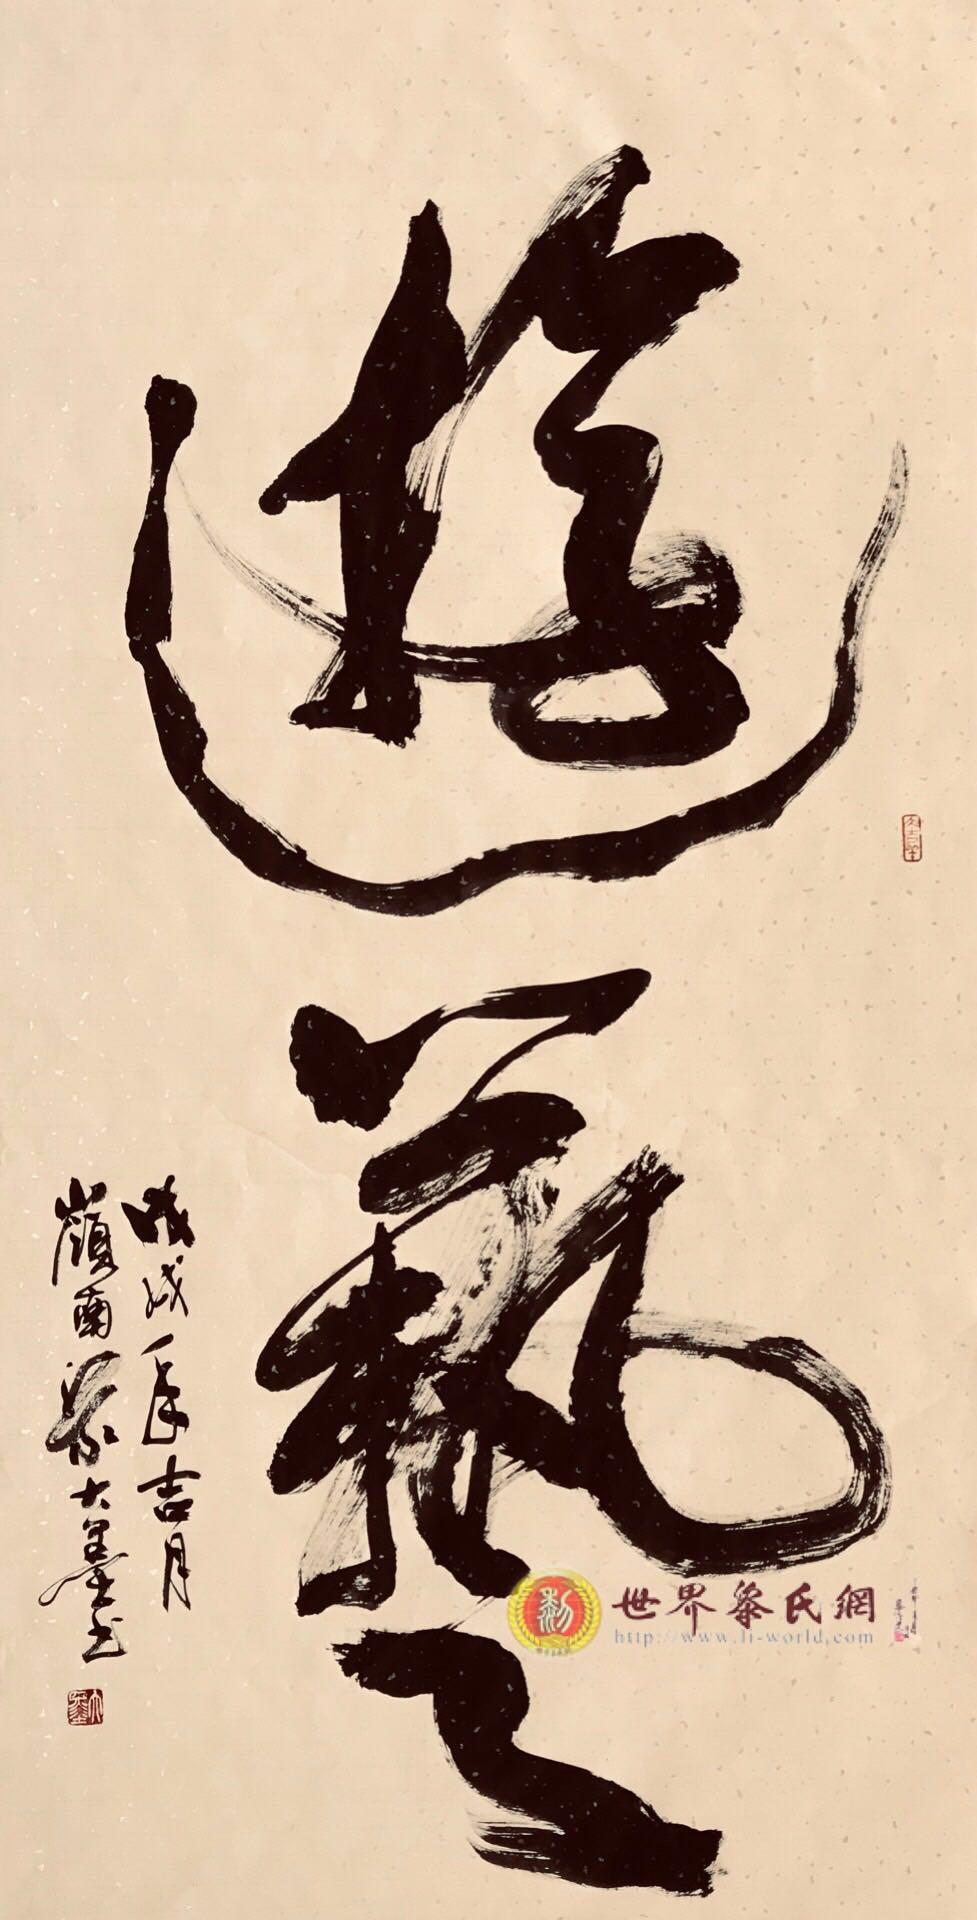 遊藝
戊戌年吉月
嶺南黎大墨書
大墨
世界黎氏網
http://www.li-world.com